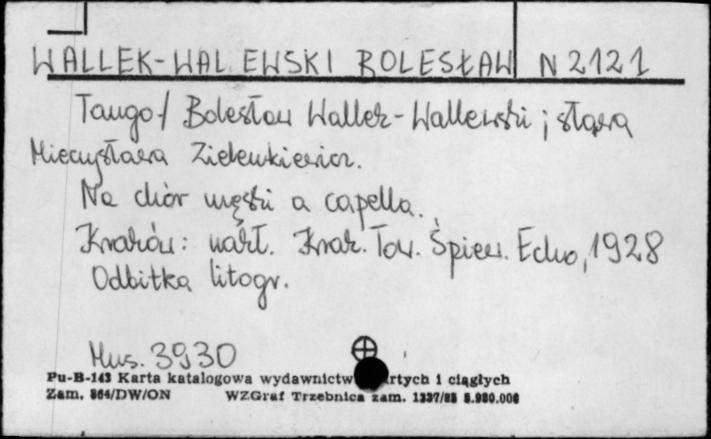 WALLEK-WALEWSKI BOLESŁAW N 2121
Tango / Bolesław Wallek-Wallewski ; słowa
Mieczysława Zielenkiewicz.
Na chór męski a capella.
Kraków: nakł. Krak. Tow. Śpiew. Echo, 1928
Odbitka litogr.
Mus. 3930
Pu-B-143 Karta katalogowa wydawnictw rtych i ciągłych
Zam. 864/DW/ON WZGraf Trzebnica zam.